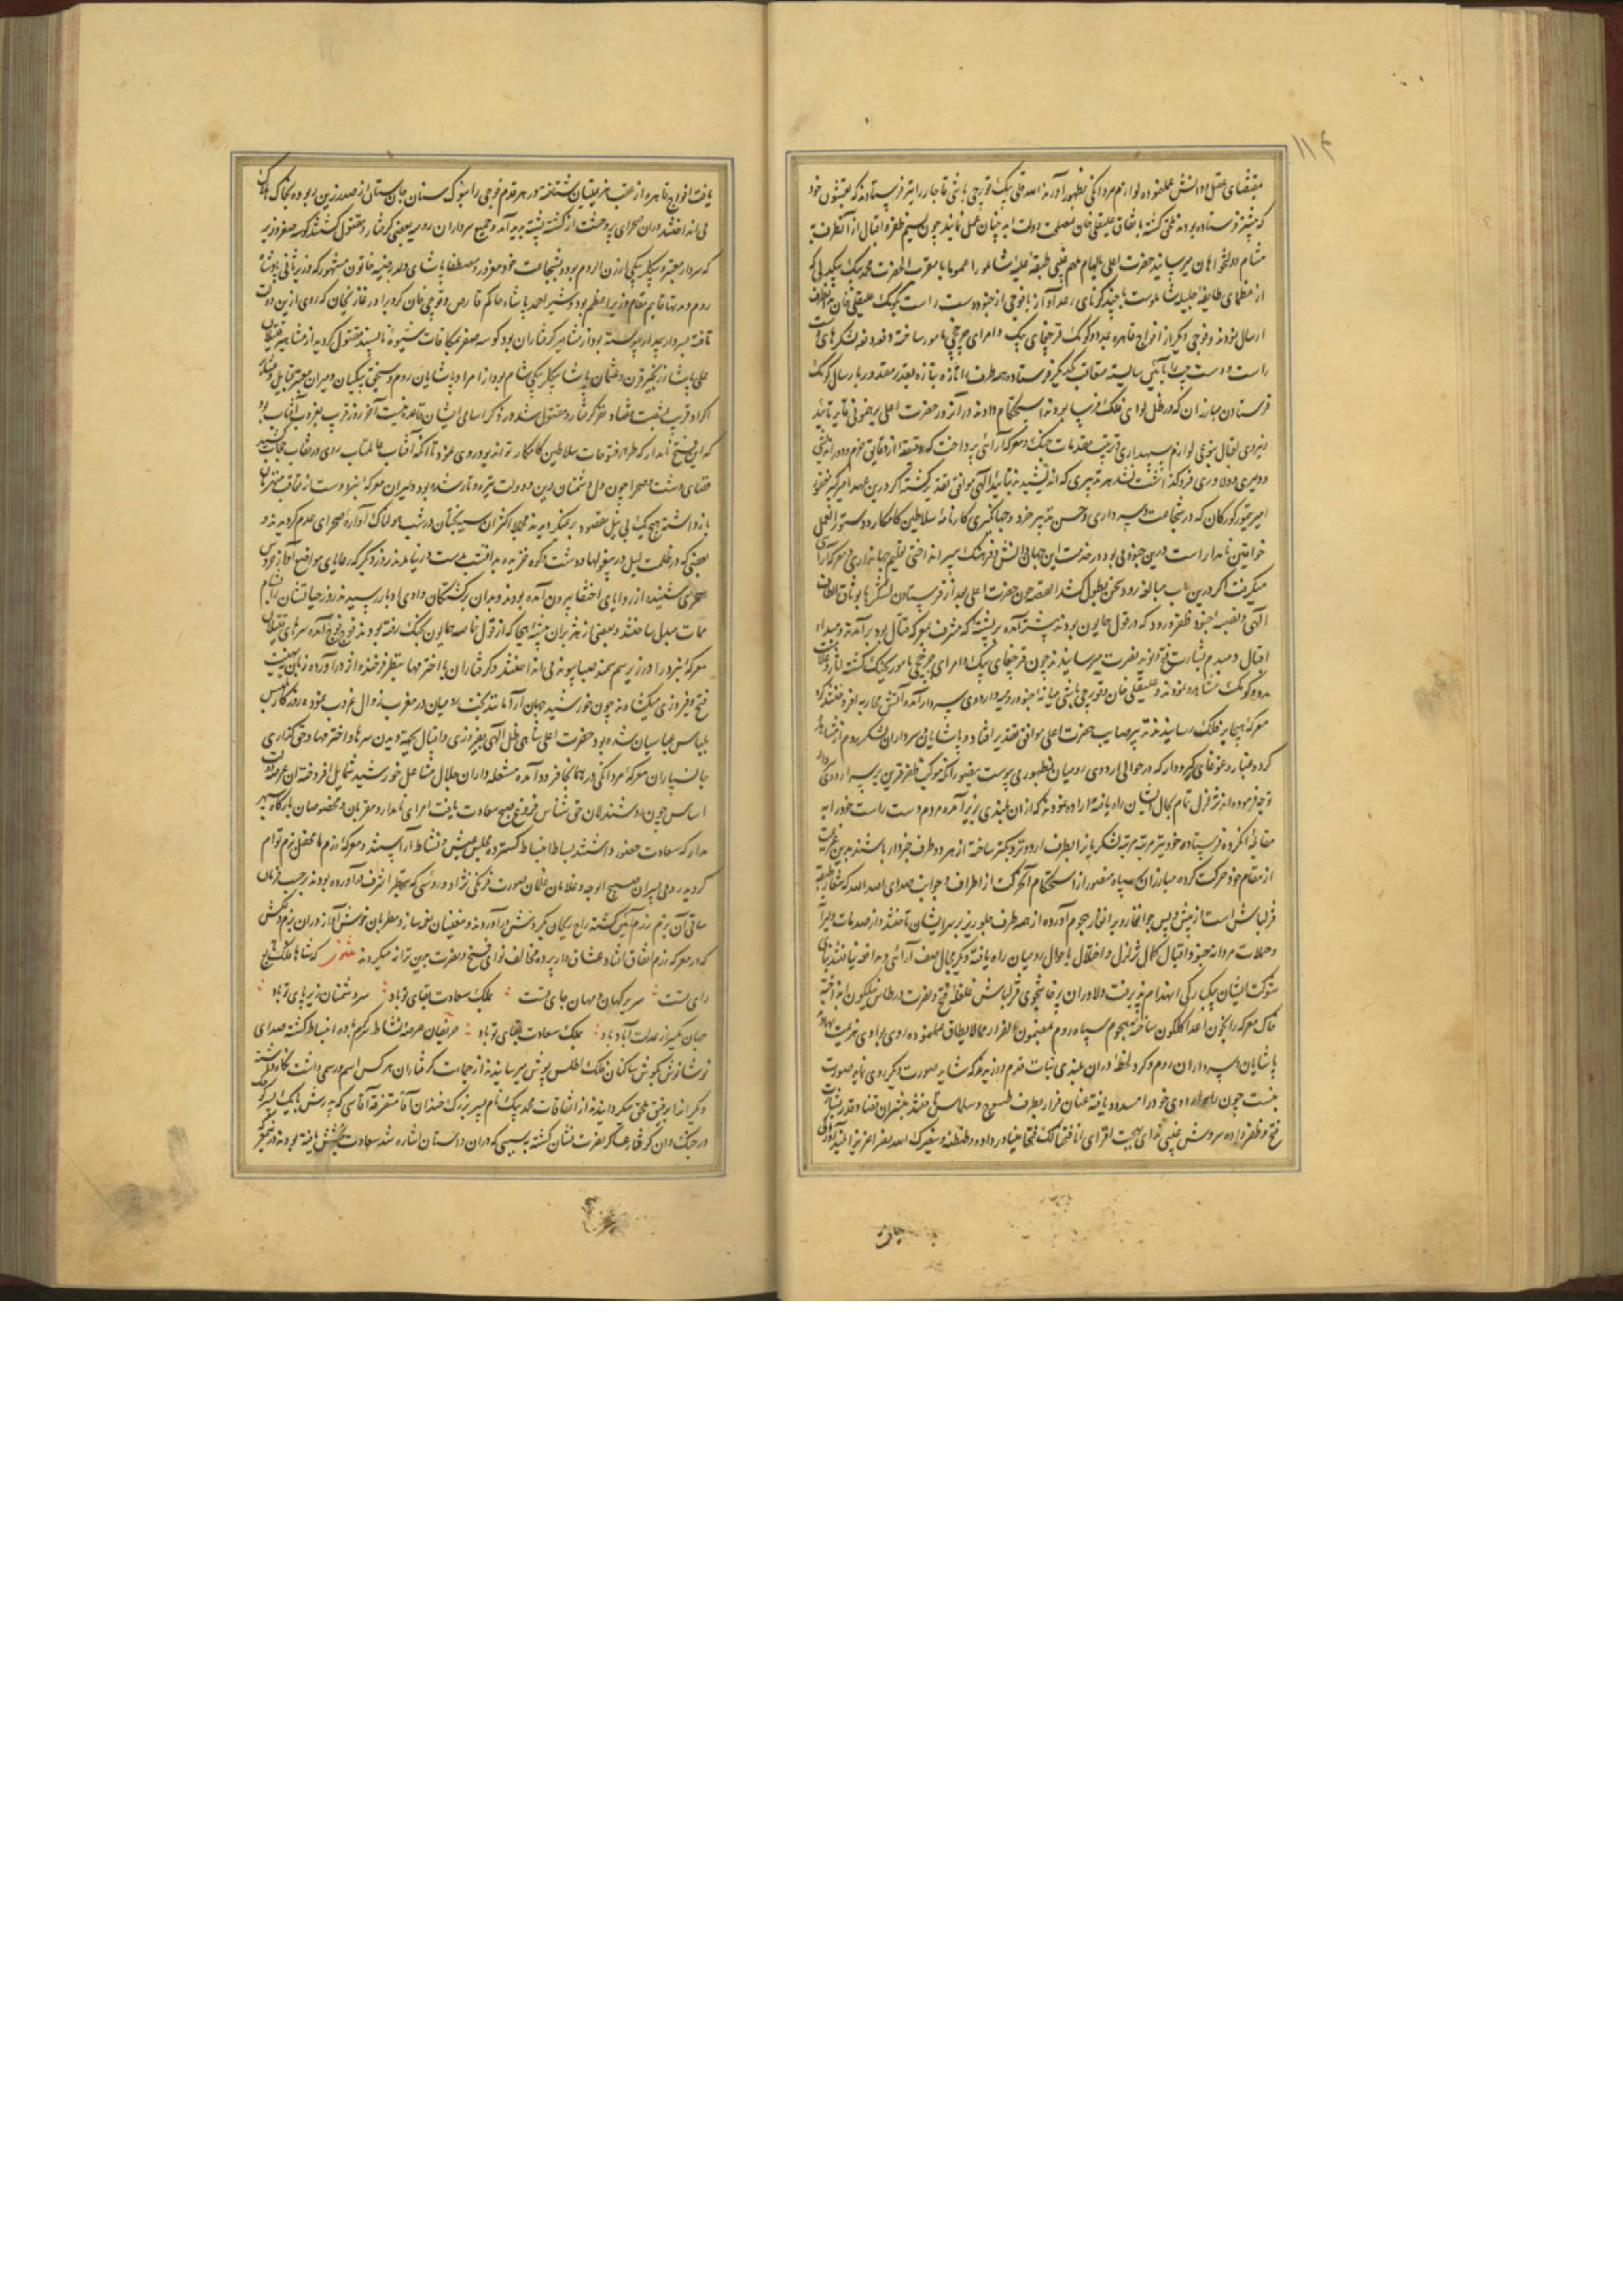 بمقتضای عقل و دانش عمل نموده لوازم مردانگی بظهور آورند الله قلی بیک قورچی باشی قاجار را نیز فرستادند که بقشون خود
که پیشتر فرستاده بودند ملحق گشته باتفاق علیقلی خان بمصلحت دولت ابد بنیان عمل نمایند چون نسیم ظفر و اقبال از آنطرف به
مشام دولتخواهان میرسانید حضرت اعلی بالهام ملهم غیبی طبقه علیه شاملو را عموما با مقرب الحضرت محمد بیک بیکدلی که
از عظمای طایفه جلیله شاملوست با چند کرنای رعد آواز با فوجی از جنود دست راست بکومک علیقلی خان
ارسال نمودند و فوجی دیگر از افواج قاهره بمدد و کومک قرچغای بیک و امرای چرخچی مامور ساخته دفعه دفعه لشکرهای
راست و دست چپ را بآئین شایسته متعاقب یکدیگر فرستاده همه طرف را تازه بتازه بقدر مقدور بارسال کومک
فرستادن مبارزان که در ظل لوای فلک فرسا بودند استحکام دادند در آنروز حضرت اعلی برهنمونی قاید تائید
و نیروی اقبال بنوعی لوازم سپهداری و ترتیب مقدمات جنگ و معرکه آرائی پرداخت که دقیقه از دقایق حزم و دوراندیشی
و دلیری و دلاوری فروگذاشت نشد هر تدبیری که اندیشیدند بتائید الهی موافق تقدیر گشته اگر درین عهد امیر کبیر مغفور
امیر تیمور گورکان که در شجاعت و سپه داری و حسن تدبیر و جهانگیری کارنامه سلاطین کامکار و دستور العمل
خواقین نامدار است درین جزو می بود در خدمت این جهان دانش و فرهنگ سپر انداختی تعلیم جهانداری و معرکه آرائی
میگرفت اگر درین باب مبالغه رود سخن بطول کشد القصه چون حضرت اعلی بعد از فرستادن لشکرها بوثاق الطاف
الهی و بقیه جنود ظفر ورود که در قول همایون بودند پیشتر آمده بر پشته که مشرف بمعرکه قتال بود برآمدند و مبداء
اقبال دمبدم بشارت فتح و نوید نصرت میرسانید چون قرچغای بیک و امرای چرخچی مامور بجنگ گشته
مدد و کومک مشاهده نمودند و علیقلی خان و قورچی باشی میانه جنود رومیه و اردوی سردار آمده آتش محاربه افروختند
معرکه هیجا بر فلک رسانیدند تدبیر صایب حضرت اعلی موافق تقدیر افتاد و پاشایان و سرداران لشکر روم
گرد و غبار و غوغای گیرودار که در حوالی اردوی رومیان بظهور می پیوست بتصور آنکه موکب ظفر قرین بر سر اردوی
توجه فرموده اند تزلزل تمام بحال ایشان راه یافته اراده نمودند که از آن بلندی بزیر آمده مردم دست راست خود را به
مقابله آنگروه فرستاده خود نیز مرتبه مرتبه لشکر را بر آنطرف اردو نزدیکتر ساخته از هر دو طرف خبردار باشند بدین عزیمت
از مقام خود حرکت کرده مبارزان سپاه منصور از استحکام آنحرکت از اطراف و جوانب صدای الله الله که شعار طبقه
قزلباش است از پیش و پس جوانغار و برانغار هجوم آورده از همه طرف جلوریز بر سر ایشان تاختند و از صدمات
و حملات مردانه جنود اقبال کمال تزلزل و اختلال باحوال رومیان راه یافته دیگر مجال صف آرائی و مدافعه نیافتند
شوکت ایشان بیکبارگی انهدام پذیرفت دلاوران پرخاشجوی قزلباش غلغله فتح و نصرت در طاس نیلگون انداخته
خاک معرکه را بخون اعدا گلگون ساختند هجوم سپاه روم بمضمون الفرار مما لا یطاق عمل نموده روی بوادی هزیمت نهادند
پاشایان و سرداران روم و کرد لحظه در آن بلندی ثبات قدم ورزیدند که شاید صورت دیگر روی نماید صورت
نبست چون راه اردوی خود را مسدود یافتند عنان فرار بطرف طسوج و سلماس تافتند مبشران قضا و قدر بشارت
فتح و ظفر داده سروش غیبی ندای بهجت افزای انا فتحنا لک فتحا مبینا در داده و طنطنه و ینصرک الله نصرا عزیزا
یافت
یافت افواج قاهره از عقب هزیمتیان شتافته در هر قدم فوجی را بنوک سنان جان ستان از صدر زین ربوده بخاک هلاک
می انداختند و در آن صحرای پر وحشت از کشته پشته پدید آمد و جمیع سرداران رومیه بعضی گرفتار و مقتول گشتند کوسه صفر وزیر
که سردار معتبر و بیکلربیکی ارزن الروم بود و بشجاعت خود مغرور و مصطفی پاشای ولد رضیه خاتون مشهور که وزیر ثانی پادشاه
روم و مدتها قایم مقام وزیر اعظم بود و شیر احمد پاشا حاکم قارص و قوچی خان کرد برادر غازیخان که روی ازین دولت
تافته بسردار پیوسته بود از مشاهیر گرفتاران بود کوسه صفر بمکافات شیوه ناپسند مقتول گردید از مشاهیر قتیلان
علی پاشا زنجیر قرن و عثمان پاشا بیکلربیکی شام بود از امرا و پاشایان روم و سنجق بیگیان و میران معتبر قبایل و عشایر
اکراد قریب بشصت هفتاد نفر گرفتار و مقتول شده در ذکر اسامی ایشان فایده نیست آخر روز قریب بغروب آفتاب بود
که این فتح نامدار که طراز فتوحات سلاطین کامکار تواند بود روی نمود تا آنکه آفتاب عالمتاب روی در نقاب حجاب کشید
فضای دشت و صحرا چون دل دشمنان دین و دولت تیره و تار شده بود دلیران معرکه نبرد دست از تعاقب منهزمان
بازداشته هیچ یک بی نیل مقصود برنمیگردیدند مجملا اکثر آن سیه بختان در شب هولناک آواره صحرای عدم گردیدند و
بعضی که در ظلمت لیل در بیغولها و دشت و کوه خزیده بدر رفتند بدست در نیامدند روز دیگر که رعایای مواضع آواز خروس
سحری شنیده از زوایای اختفا بیرون آمده بودند و بدان برگشتگان وادی ادبار رسیدند روز حیاتشان را بشام
ممات مبدل ساختند و بعضی از هژبران بیشه هیجا که از قول خاصه همایون بجنگ رفته بودند فوج فوج آمده سرهای قتیلان
معرکه نبرد را در زیر سم سمند صبا پیوند می انداختند و گرفتاران با اخترمها بنظر فرخنده اثر درآورده زبان بتهنیت
فتح و فیروزی میگشادند چون خورشید جهان آرا مانند بخت رومیان در مغرب زوال غروب نموده روزگار لباس
بلباس عباسیان شده بود حضرت اعلی شاهی ظل الهی بفیروزی و اقبال بجهت دیدن سرها و اخترمها و حق گذاری
جانسپاران معرکه مردانگی در همانجا فرود آمده مشعله داران جلال مشاعل خورشید شمایل افروخته آن عرصه
اساس چون روشندلان حق شناس فروغ صبح سعادت یافت امرای نامدار و مقربان و مخصوصان بارگاه سپهر
مدار که سعادت حضور داشتند بساط انبساط گسترده مجلس عیش و نشاط آراستند و معرکه رزم با محفل بزم توام
گردید رومی پسران صبیح الوجه و غلامان غلمان صورت فرنگی نژاد و روسی که بنظر اشرف درآورده بودند برحسب فرمان
ساقی آن بزم رزم آئین گشته راح ریحان بگردش درآوردند و مغنیان نغمه ساز و مطربان خوش آواز در آن بزم دلکش
که در معرکه رزم اتفاق افتاد عشاق وار پرده مخالف نوای فتح و نصرت بدین ترانه میکردند مثنوی که شاها فلک تابع
رای تست سریر کیهان و مهان جای تست بملک سعادت بقای تو باد سر دشمنان زیر پای تو باد
جهان یکسر از عدلت آباد باد بملک سعادت بقای تو باد حریفان عرصه نشاط سرگرم باده انبساط گشته صدای
نوشانوش بگوش ساکنان فلک اطلس پوش میرسانیدند از جماعت گرفتاران هر کس اسم و رسمی داشت نگاه داشته
دیگر را برفیق ملحق میگردانیدند از اتفاقات محمد بیک نام پسر بزرگ خندان آقا متفرقه آقاسی که پدرش بایلچیگری
در جنگ وان گرفتار عساکر نصرت نشان گشته بسببی که در آن داستان اشاره شد سعادت بخشش یافته بود